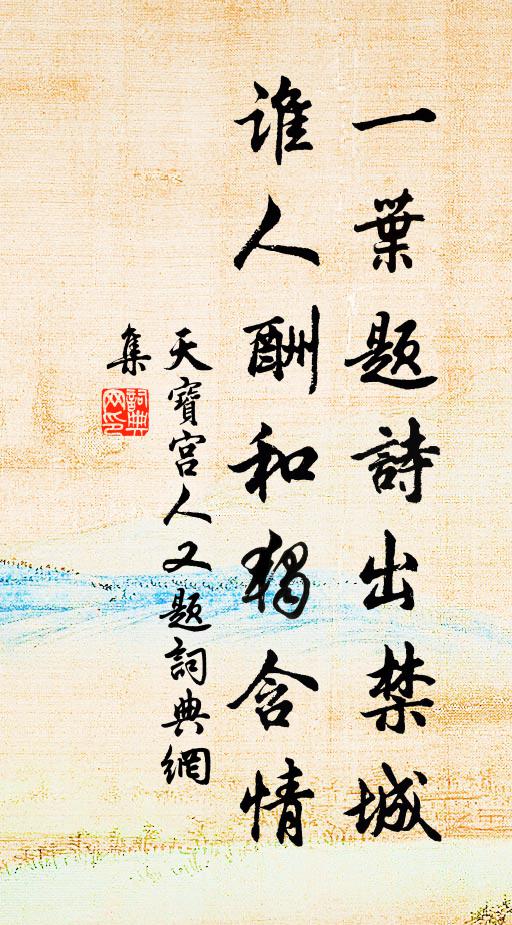 一葉題詩出禁城
誰人酬和獨含情
天寶宮人又題詞典網
集
詞典
网印